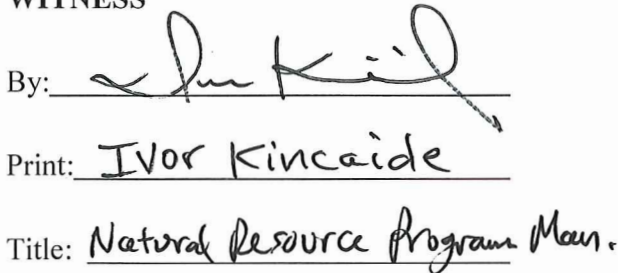 WITNESS
By:
Print: Ivor Kincaide
Title: Natural Resource Program Man.